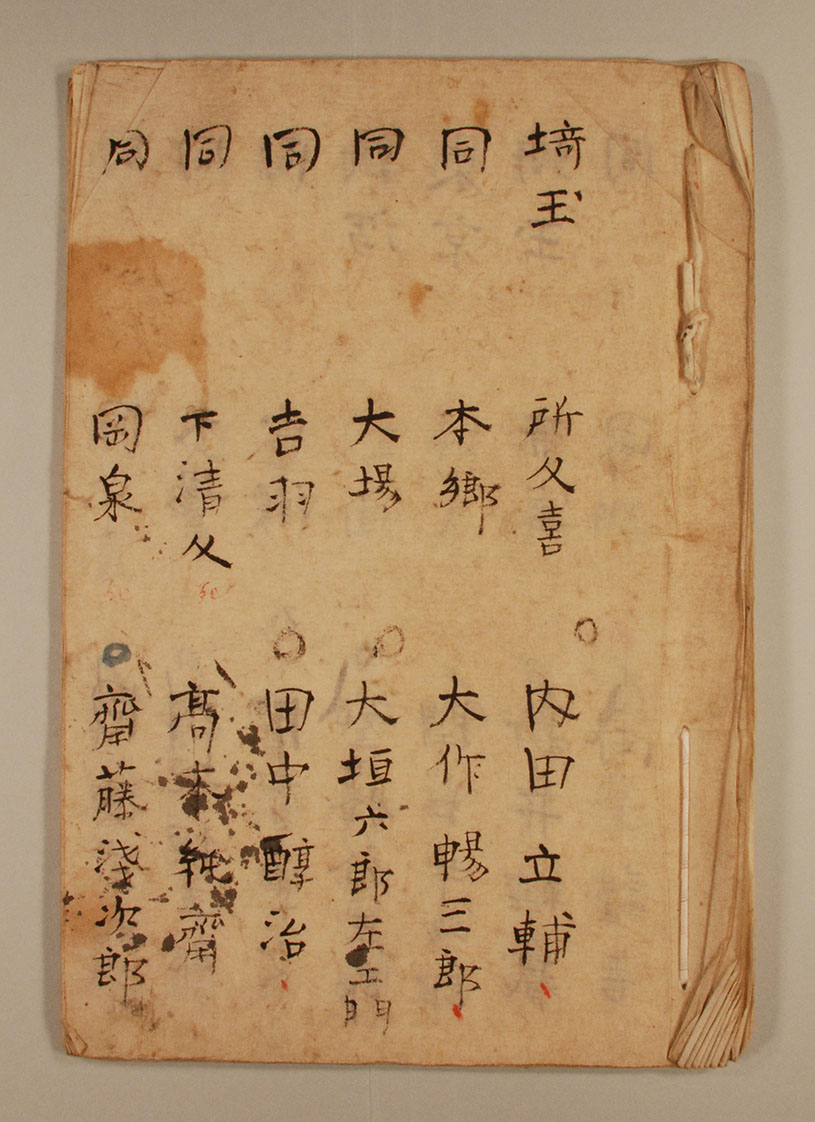 埼玉 所久喜 内田立輔
同 本郷 大作暢三郎
同 大場 大垣六郎左エ門
同 吉羽 田中醇治
同 下清久 死 高木純齋
同 岡泉 死 齊藤浅次郎